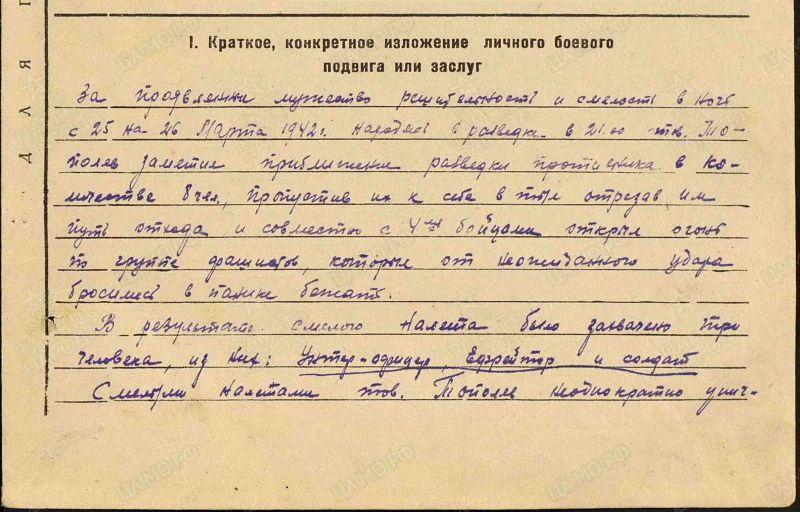 Д Л Я
I. Краткое, конкретное изложение личного боевого
подвига или заслуг
За проявленны мужество решительность и смелость в ночь
с 25 на 26 Марта 1942 г. находясь в разведке в 21.00 тов. То-
полев заметил приближение разведки противника в ко-
личестве 8 чел., пропустив их к себе в тыл отрезав им
путь отхода и совместно с 4мя бойцами открыл огонь
по группе фашистов, которые от неожиданного удара
бросились в панике бежать.
В результате смелого налета было захвачено три
человека, из них: Унтер-офицер, Ефрейтор и солдат
Смелыми налетами тов. Тополев неоднократно унич-
ЦАМО.РФ
ЦАМО.РФ
ЦАМО.РФ
ЦАМО.РФ